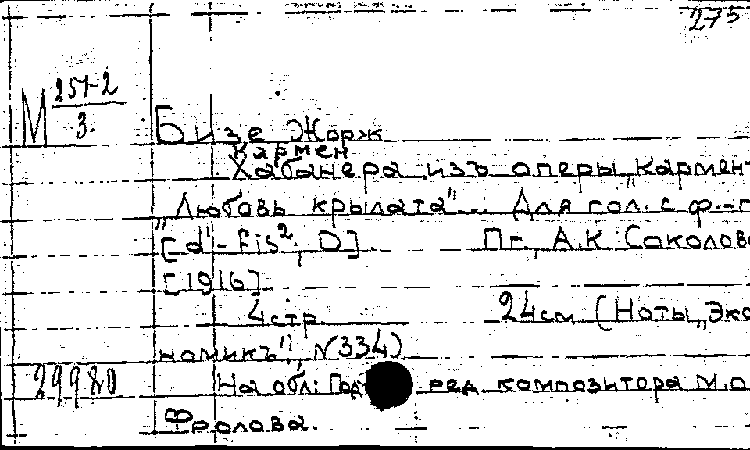 275
М 251-2
3.
Бизе Жорж
Кармен
Хабанера изъ оперы „Кармен
„Любовь крылата"... Для гол. с ф.-п
[d¹-fis², D] Пг., А.К Соколова
[1916]
4 стр. 24см (Ноты „Эко
номикъ", N334)
29980 На обл: Под ред композитора М.О.
Фролова.